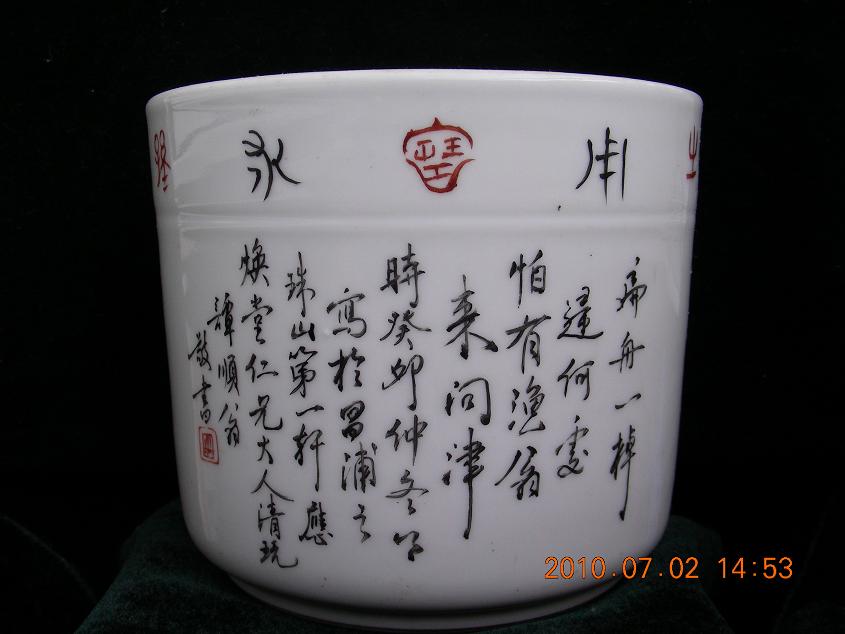 永寶用之
扁舟一棹
歸何處
怕有漁翁
来問津
時癸卯仲冬
寫於昌浦之
珠山第一軒應
煥堂仁兄大人清玩
譚順翁
敬書
2010.07.02 14:53